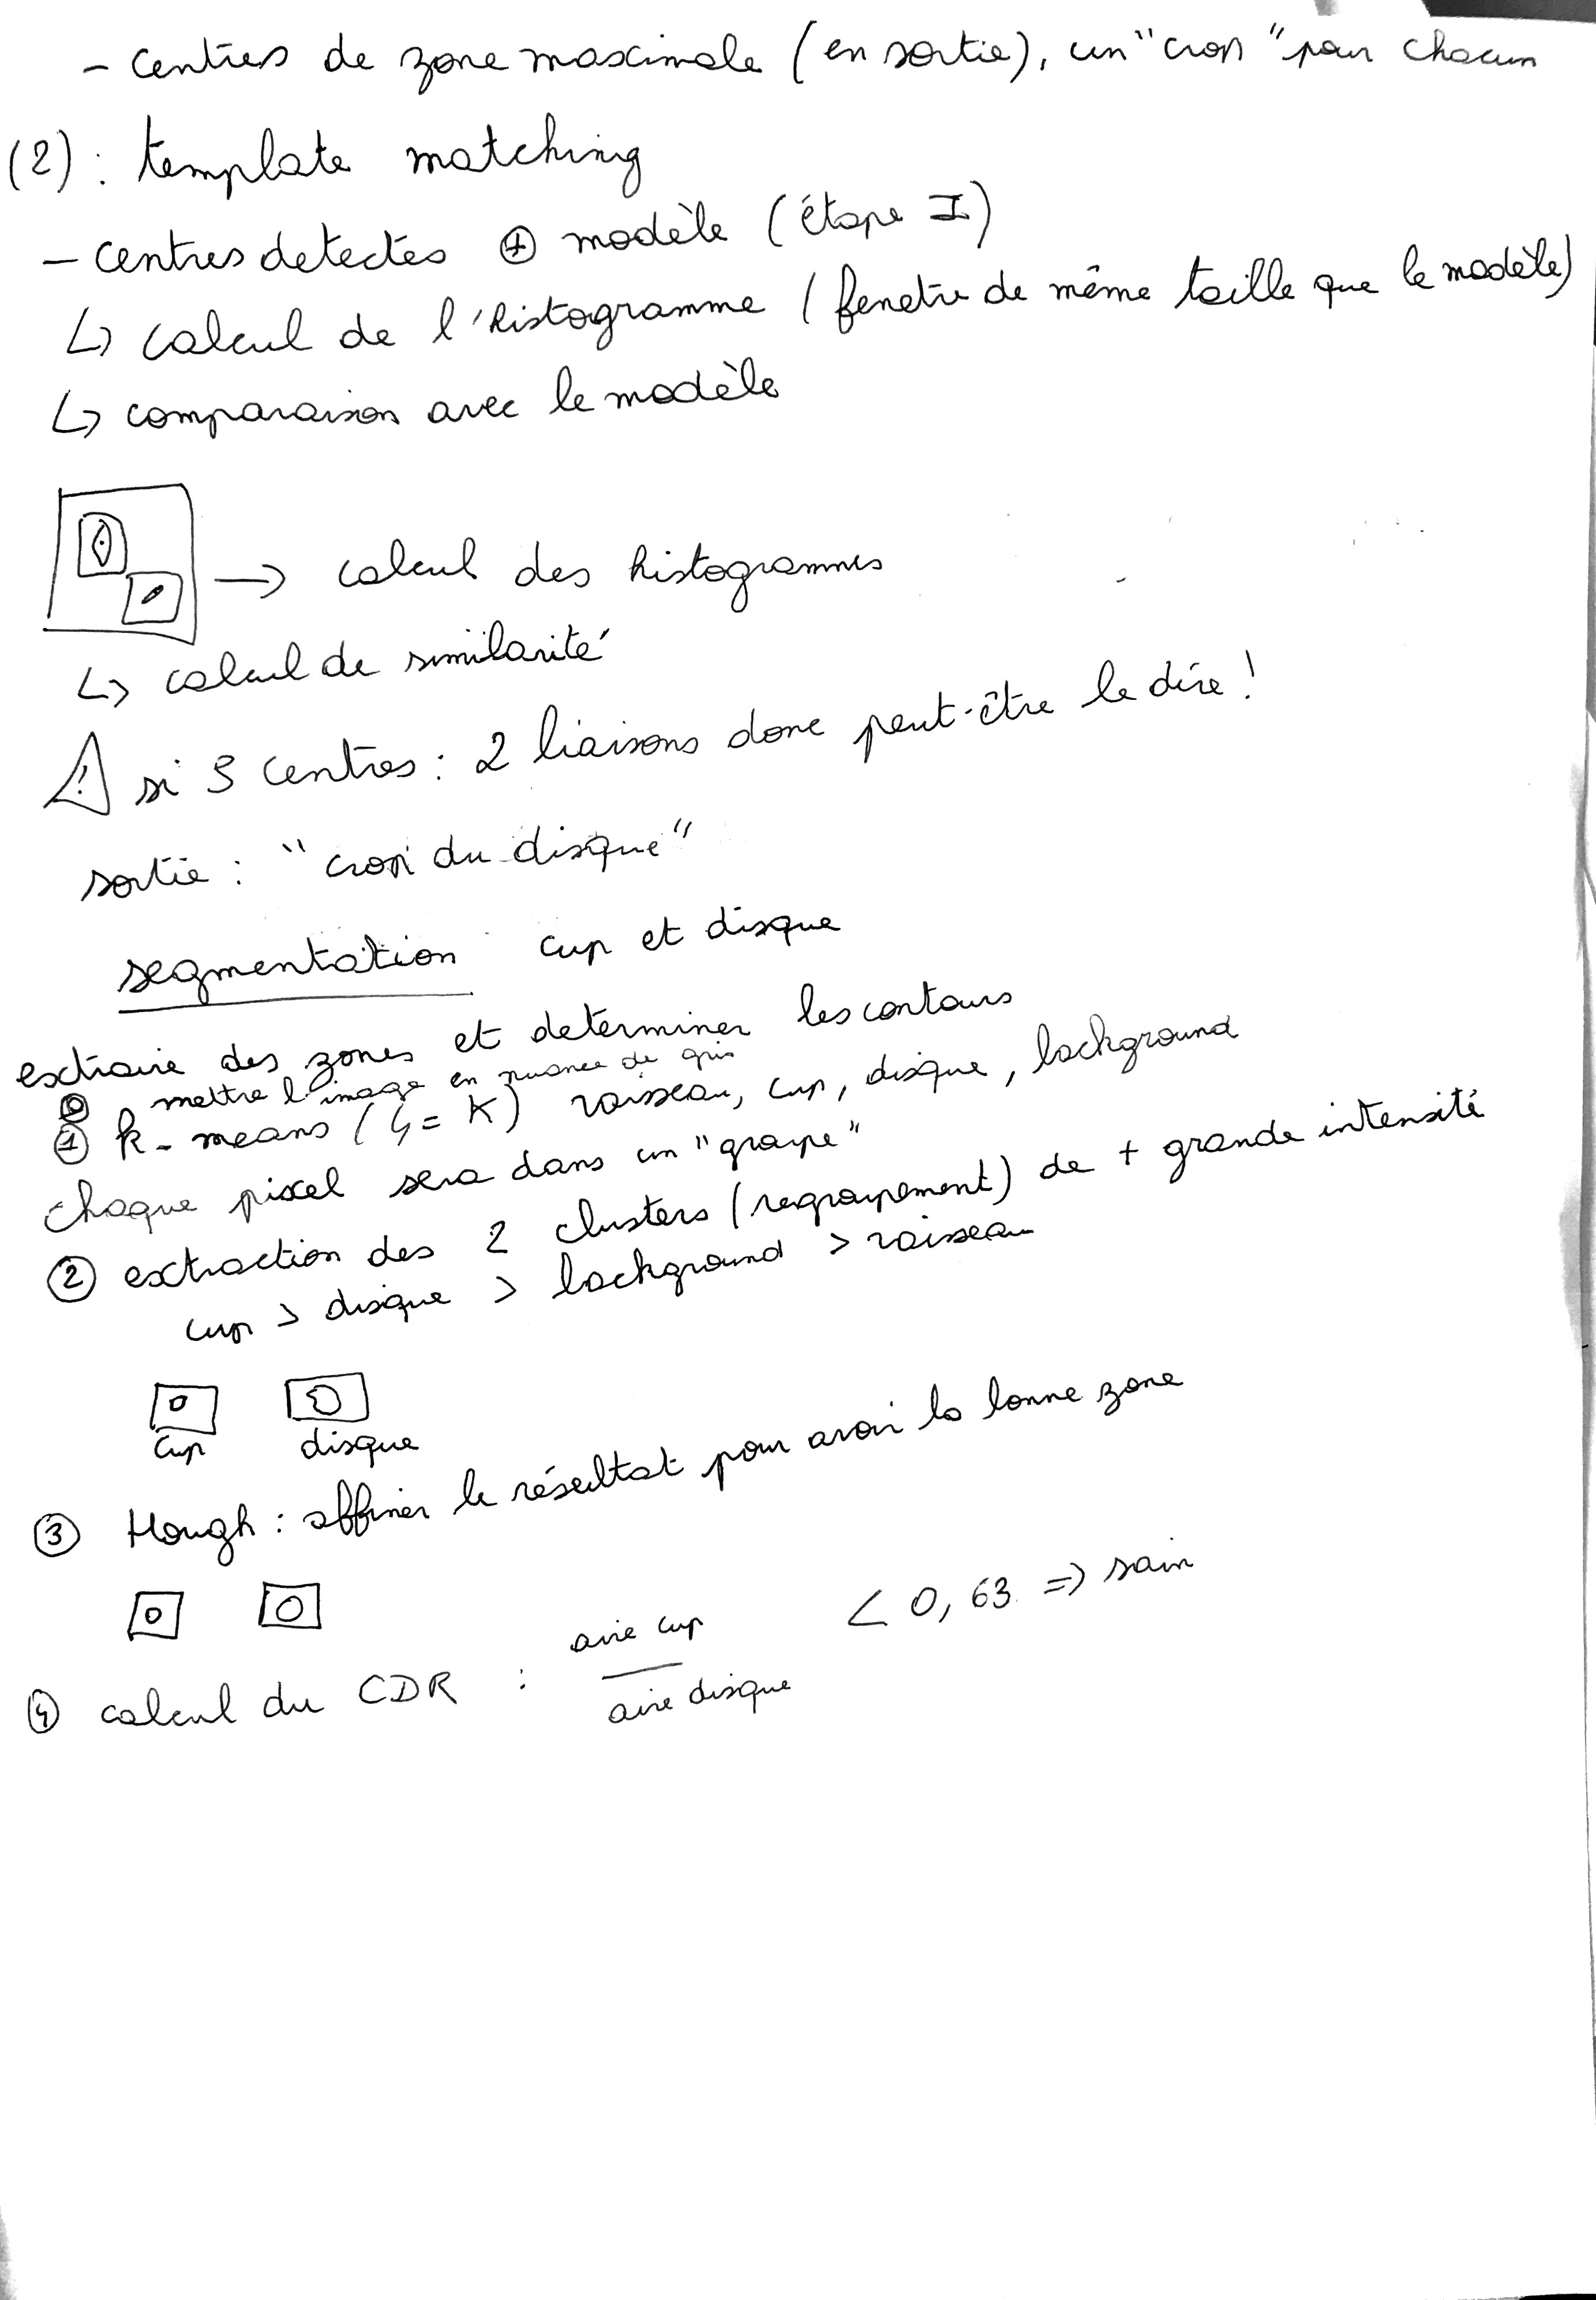 - centres de zone maximale (en sortie), un "crop" pour chacun
(2) : template matching
- centres detectés ⊕ modèle (étape I)
↳ calcul de l'histogramme (fenetre de même taille que le modèle)
↳ comparaison avec le modèle
→ calcul des histogrammes
↳ calcul de similarité
⚠ si 3 centres : 2 liaisons donc peut-être le dire !
sortie : "crop du disque"
segmentation cup et disque
extraire des zones et determiner les contours
⓪ mettre l'image en nuance de gris
① k-means (4 = K) vaisseau, cup, disque, background
chaque pixel sera dans un "groupe"
② extraction des 2 clusters (regroupement) de + grande intensité
cup > disque > background > vaisseau
cup disque
③ Hough : affiner le résultat pour avoir la bonne zone
④ calcul du CDR : aire cup / aire disque < 0,63 => sain